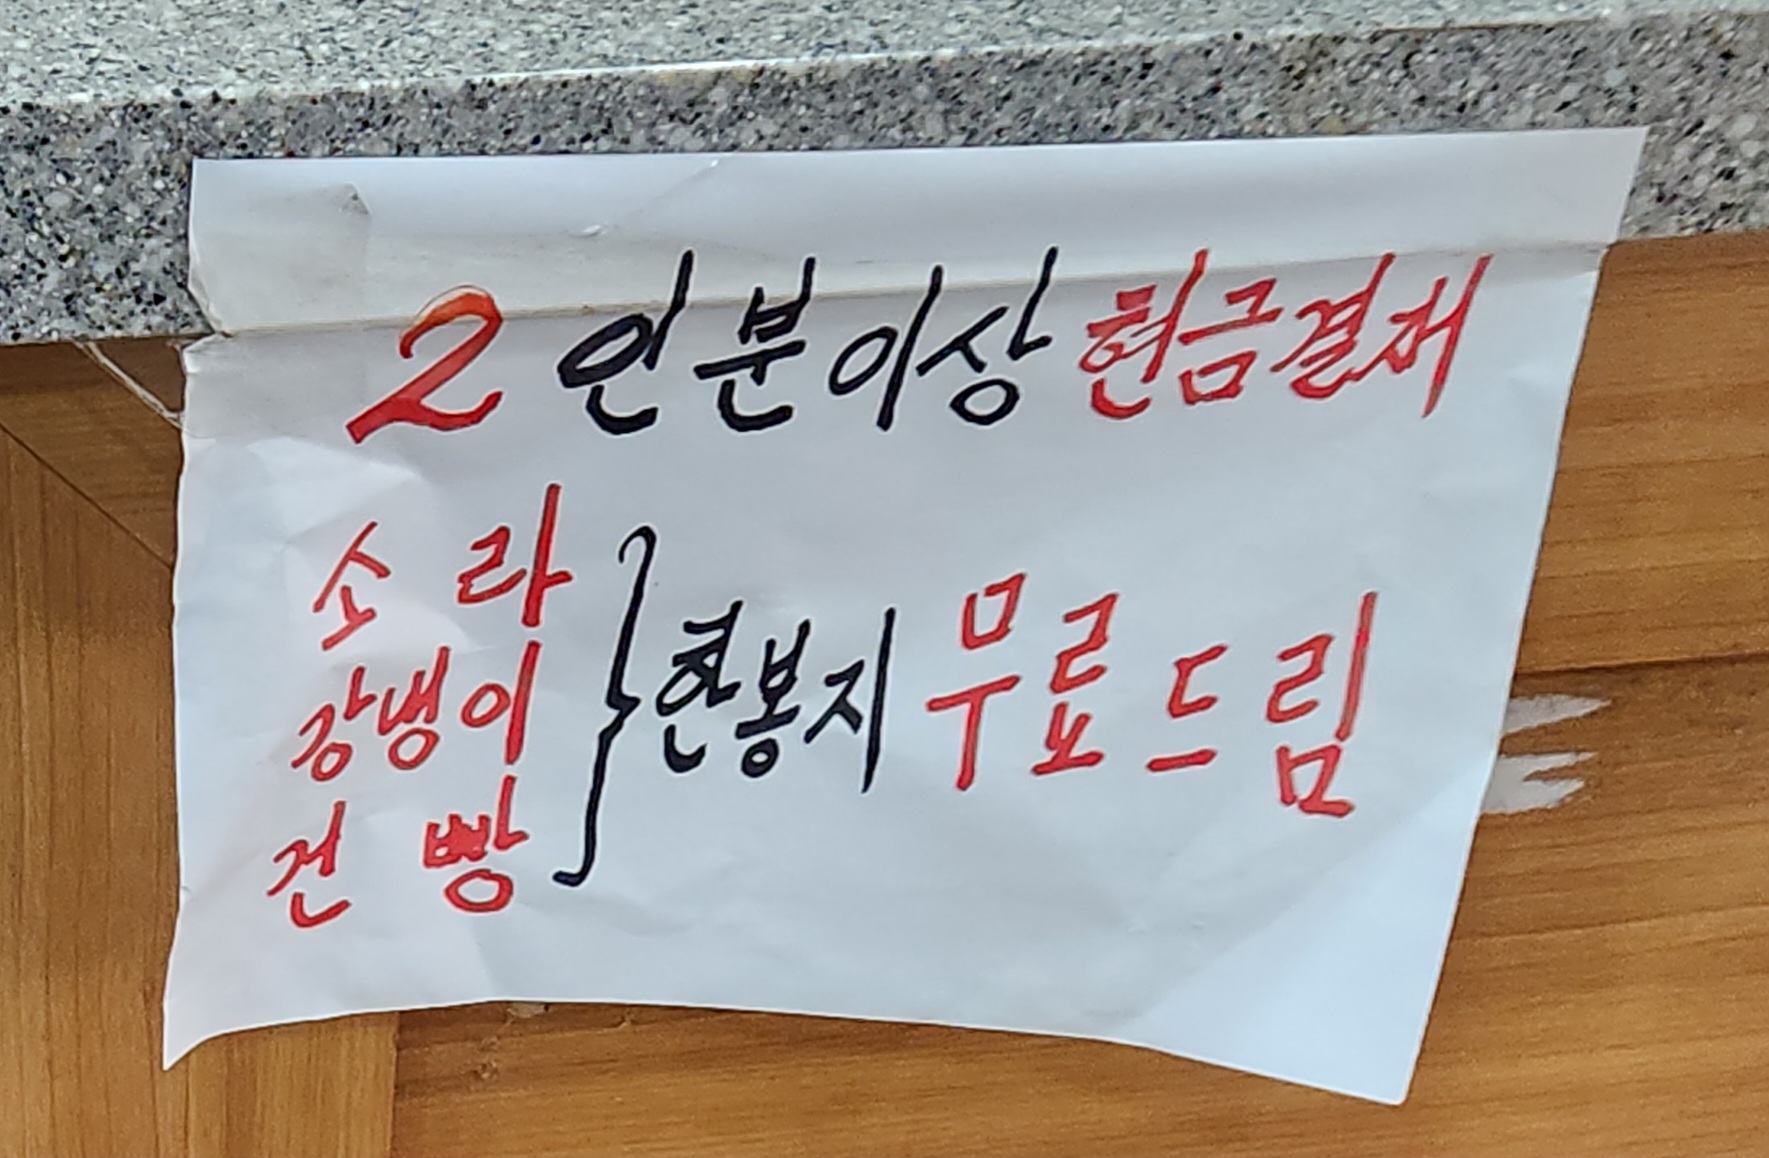 2인분이상 현금결재
소라
강냉이 } 한봉지 무료드림
건빵